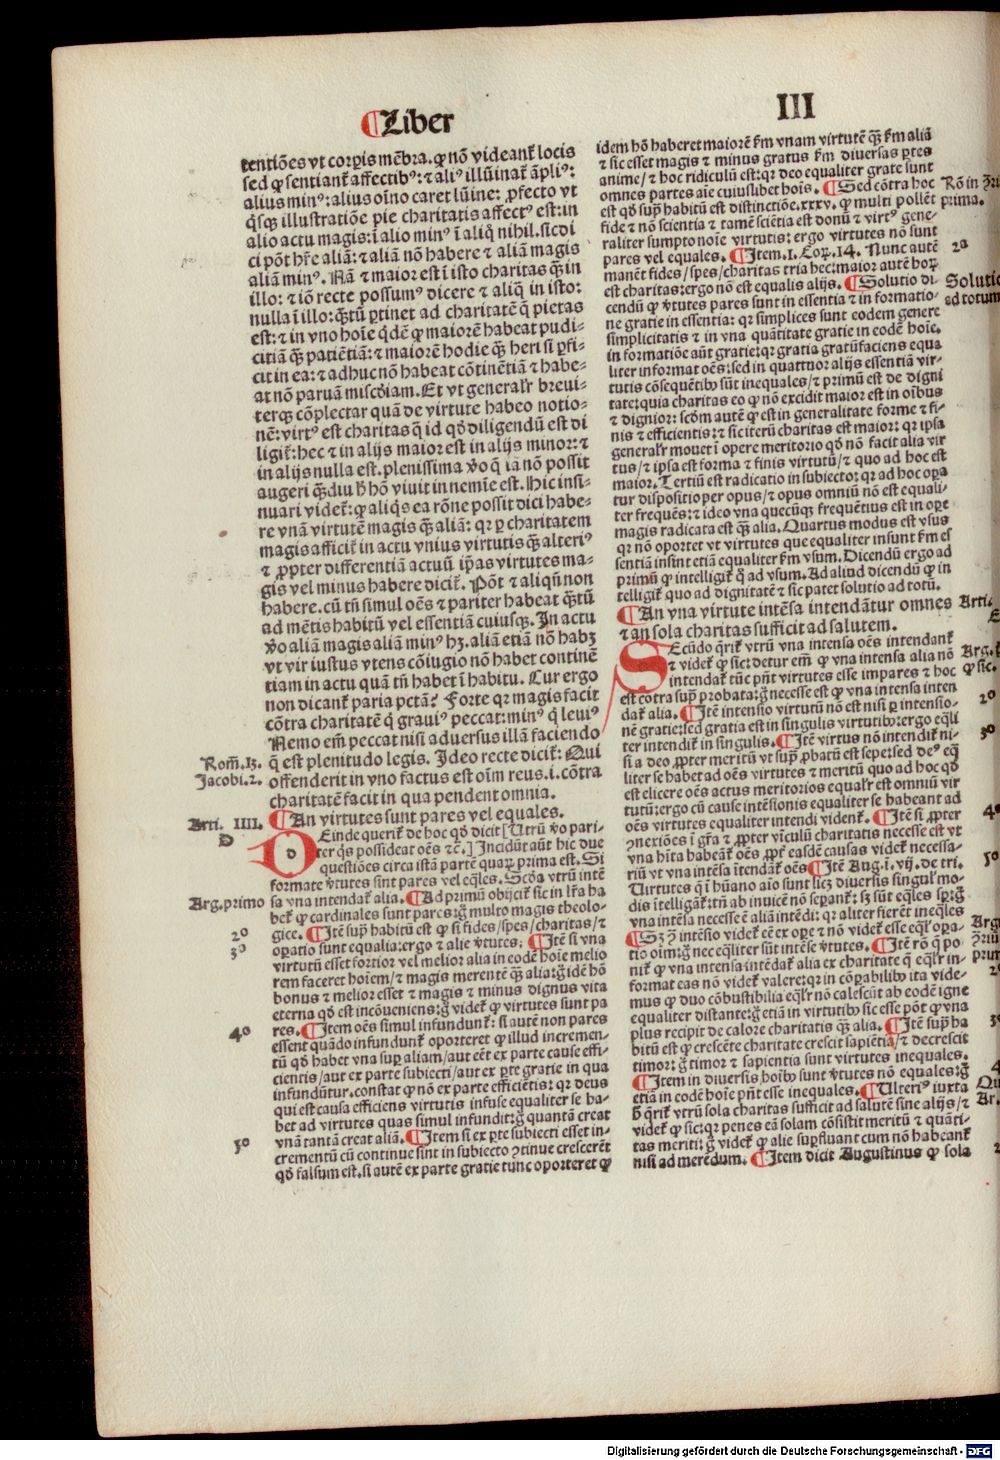 ¶Liber
III
tentiões vt corꝑis mēbra. ꝙ nō videant̄ locis
sed ꝙ sentiant̄ affectibꝰ: ⁊ aliꝰ illūinat̄ āpliꝰ:
alius minꝰ: alius oīno caret lūine: ꝓfecto vt
q̄sqꝫ illustratiōe pie charitatis affectꝰ est: in
alio actu magis: ī alio minꝰ ī aliq̄ nihil. sic di
ci pōt hr̄e aliā: ⁊ aliā nō habere ⁊ aliā magis
aliā minꝰ. Nā ⁊ maior est ī isto charitas qꝫ̄ in
illo: ⁊ iō recte possumꝰ dicere ⁊ aliq̄ in isto:
nulla ī illo: qꝫ̄tū ꝑtinet ad charitatē q̄ pietas
est: ⁊ in vno hoīe q̄dē ꝙ maiorē habeat pudi-
citiā qꝫ̄ patiētiā: ⁊ maiorē hodie qꝫ̄ heri si ꝓfi-
cit in ea: ⁊ adhuc nō habeat cōtinētiā ⁊ habe-
at nō paruā miscdiam. Et vt generalr̄ breui-
terqꝫ cōplectar quā de virtute habeo notio-
nē: virtꝰ est charitas q̄ id qd̄ diligendū est di
ligit̄: hec ⁊ in alijs maior est in alijs minor: ⁊
in alijs nulla est. plenissima v̄o q̄ iā nō possit
augeri qꝫ̄diu h̄ hō viuit in nemīe est. Hic insi-
nuari videt̄: ꝙ aliq̄s ea rōne possit dici habe-
re vnā virtutē magis qꝫ̄ aliā: qꝛ ꝑ charitatem
magis afficit̄ in actu vnius virtutis qꝫ̄ alteriꝰ
⁊ ꝓpter differentiā actuū ip̄as virtutes ma-
gis vel minus habere dicit̄. Pōt ⁊ aliquā non
habere. cū tn̄ simul oēs ⁊ pariter habeat qꝫ̄tū
ad mētis habitū vel essentiā cuiusqꝫ. In actu
v̄o aliā magis aliā minꝰ hꝫ. aliā etiā nō habꝫ
vt vir iustus vtens cōiugio nō habet continē
tiam in actu quā tn̄ habet ī habitu. Cur ergo
non dicant̄ paria pctā? Forte qꝛ magis facit
cōtra charitatē q̄ grauiꝰ peccat: minꝰ q̄ leuiꝰ
Nemo em̄ peccat nisi aduersus illā faciendo
q̄ est plenitudo legis. Ideo recte dicit̄: Qui
offenderit in vno factus est oīm reus. i. cōtra
charitatē facit in qua pendent omnia.
Rom̄. 13.
Jacobi. 2.
Arti. IIII.
D
¶An virtutes sunt pares vel equales.
DEinde querit̄ de hoc qd̄ dicit [Utrū v̄o pari-
ter q̄s possideat oēs ⁊c̄.] Incidūt aūt hic due
questiōes circa istā partē quaꝝ prima est. Si
formate v̄tutes sint pares vel eq̄les. Scd̄a vtrū intē
sa vna intendat̄ alia. ¶Ad primū obijcit̄ sic in lr̄a ha
bet̄ ꝙ cardinales sunt pares: ḡ multo magis theolo-
gice. ¶Itē supͣ habitū est ꝙ si fides/spes/charitas/⁊
oꝑatio sunt equalia: ergo ⁊ alie v̄tutes. ¶Itē si vna
virtutū esset fortior vel melior alia in eodē hoīe melio
rem faceret hoīem/⁊ magis merentē qꝫ̄ alia: ḡ idē hō
bonus ⁊ melior esset ⁊ magis ⁊ minus dignus vita
eterna qd̄ est incōueniens: ḡ videt̄ ꝙ virtutes sunt pa
res. ¶Item oēs simul infundunt̄: si autē non pares
essent quādo infundunt̄ oporteret ꝙ illud incremen-
tū qd̄ habet vna suꝑ aliam/aut eēt ex parte cause effi-
cientis/aut ex parte subiecti/aut ex ꝑte gratie in qua
infundūtur. constat ꝙ nō ex parte efficiētis: qꝛ deus
qui est causa efficiens virtutis infuse equaliter se ha-
bet ad virtutes quas simul infundit: ḡ quantā creat
vnā tantā creat aliā. ¶Item si ex ꝑte subiecti esset in-
crementū cū continue sint in subiecto ↄtinue crescerēt
qd̄ falsum est. si autē ex parte gratie tunc oporteret ꝙ
Arg. primo
2º
3º
4º
5º
idem hō haberet maiorē ẜm vnam virtutē qꝫ̄ ẜm aliā
⁊ sic esset magis ⁊ minus gratus ẜm diuersas ꝑtes
anime/⁊ hoc ridiculū est: qꝛ deo equaliter grate sunt
omnes partes aīe cuiuslibet hoīs. ¶Sed cōtra hoc
est qd̄ supͣ habitū est distinctiōe. xxxv. ꝙ multi pollēt
fide ⁊ nō scientia ⁊ tamē sciētia est donū ⁊ virtꝰ gene-
raliter sumpto noīe virtutis: ergo virtutes nō sunt
pares vel equales. ¶Item. 1. Coꝝ. 14. Nunc autē
manēt fides/spes/charitas tria hec: maior autē hoꝝ
est charitas: ergo nō est equalis alijs. ¶Solutio di-
cendū ꝙ v̄tutes pares sunt in essentia ⁊ in formatio-
ne gratie in essentia: qꝛ simplices sunt eodem genere
simplicitatis ⁊ in vna quātitate gratie in eodē hoīe.
in formatiōe aūt gratie: qꝛ gratia gratūfaciens equa
liter informat oēs: sed in quattuor alijs essentiā vir-
tutis cōsequētibꝰ sūt inequales/⁊ primū est de digni
tate: quia charitas eo ꝙ nō excidit maior est in oībus
⁊ dignior: scd̄m autē ꝙ est in generalitate forme ⁊ fi-
nis ⁊ efficientis: ⁊ sic iterū charitas est maior: qꝛ ipsa
generalr̄ mouet ī opere meritorio qd̄ nō facit alia vir
tus/⁊ ipsa est forma ⁊ finis virtutū/⁊ quo ad hoc est
maior. Tertiū est radicatio in subiecto: qꝛ ad hoc oꝑa
tur dispositio per opus/⁊ opus omniū nō est equali-
ter frequēs: ⁊ ideo vna quecūqꝫ frequētius est in oꝑe
magis radicata est qꝫ̄ alia. Quartus modus est vsus
qꝛ nō oportet vt virtutes que equaliter insunt ẜm es
sentiā insint etiā equaliter ẜm vsum. Dicendū ergo ad
primū ꝙ intelligit̄ qd̄ ad vsum. Ad aliud dicendū ꝙ in
telligit̄ quo ad dignitatē ⁊ sic patet solutio ad totū.
Rō in ↄ̄ri
prima.
2ª
Solutio
ad totum
¶An vna virtute intēsa intendātur omnes
⁊ an sola charitas sufficit ad salutem.
Arti.
SEcūdo q̄rit̄ vtrū vna intensa oēs intendant̄
⁊ videt̄ ꝙ sic: detur em̄ ꝙ vna intensa alia nō
intendat̄ tūc pn̄t virtutes esse impares ⁊ hoc
est cōtra supͣ probata: ḡ necesse est ꝙ vna intensa inten
dat̄ alia. ¶Itē intensio virtutū nō est nisi ꝑ intensio-
nē gratie: sed gratia est in singulis virtutibꝰ: ergo eq̄li
ter intendit̄ in singulis. ¶Itē virtus nō intendit̄ ni-
si a deo ꝓpter meritū vt supͣ ꝓbatū est sepe: sed deꝰ eq̄
liter se habet ad oēs virtutes ⁊ meritū quo ad hoc qd̄
est elicere oēs actus meritorios equalr̄ est omniū vir
tutū: ergo cū cause intēsionis equaliter se habeant ad
oēs virtutes equaliter intendi vident̄. ¶Itē si ꝓpter
ↄnexiōes ī gr̄a ⁊ ꝓpter vīculū charitatis necesse est vt
vna hīta habeāt̄ oēs ꝓpt̄ easdē causas videt̄ necessa-
riū vt vna intēsa ītendāt̄ oēs. ¶Itē Aug. ī. vij. de tri.
Uirtutes q̄ ī hūano aīo sunt licꝫ diuersis singulr̄ mo-
dis ītelligāt̄: tn̄ ab inuicē nō seꝑant̄: sꝫ sūt eq̄les sꝑ: ḡ
vna intēsa necesse ē aliā intēdi: qꝛ aliter fierēt ineq̄les
¶Sꝫ ↄ̄ intēsio videt̄ eē ex oꝑe ⁊ nō videt̄ esse eq̄lr̄ oꝑa-
tio oīm: ḡ nec eq̄liter sūt intēse v̄tutes. ¶Itē rō q̄ po
nit̄ ꝙ vna intensa intēdat̄ alia ex charitate q̄ eq̄lr̄ in-
format eas nō videt̄ valere: qꝛ in cōꝑabilibꝰ ita vide-
mus ꝙ duo cōbustibilia eq̄lr̄ nō calescūt ab eodē igne
equaliter distante: ḡ etiā in virtutibꝰ sic esse pōt ꝙ vna
plus recipit de calore charitatis qꝫ̄ alia. ¶Itē supͣ ha
bitū est ꝙ crescēte charitate crescit sapiētia/⁊ decrescit
timor: ḡ timor ⁊ sapientia sunt virtutes inequales.
¶Item in diuersis hoībꝰ sunt v̄tutes nō equales: ḡ
etiā in eodē hoīe pn̄t esse inequales. ¶Ulteriꝰ iuxta
h̄ q̄rit̄ vtrū sola charitas sufficit ad salutē sine alijs/⁊
videt̄ ꝙ sic: qꝛ penes eā solam cōsistit meritū ⁊ quāti-
tas meriti: ḡ videt̄ ꝙ alie suꝑfluant cum nō habeant̄
nisi ad merēdum. ¶Item dicit Augustinus ꝙ sola
Arg.
ꝙ sic.
2º
3º
4º
5º
Digitalisierung gefördert durch die Deutsche Forschungsgemeinschaft - DFG